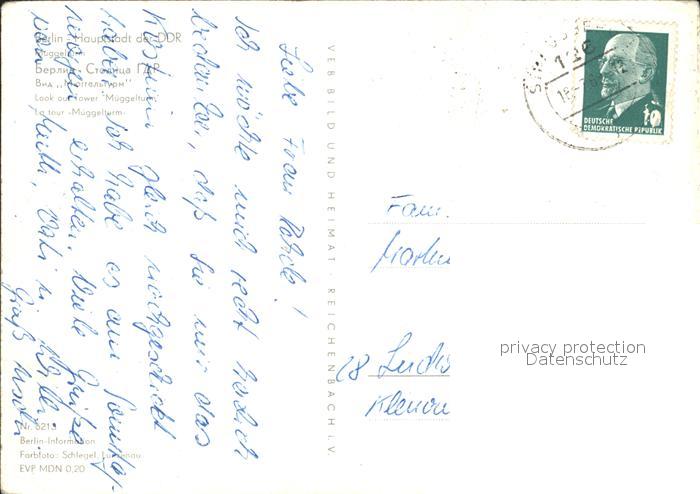 Berlin - Hauptstadt der DDR
Müggelturm
Берлин - Столица ГДР
Вид „Мюггельтурм"
Look out Tower "Müggelturm"
La tour «Müggelturm»
Liebe Frau
Ich möchte mich recht herzlich
bedanken, daß Sie mir das
Kostüm gleich nachgeschickt
haben. Ich habe es am Sonntag-
morgen erhalten. Viele Grüße
von Mutti, Vati u. Willi.
Gruß
Nr. 6213
Berlin-Information
Farbfoto: Schlegel, Luckenau
EVP MDN 0,20
VEB BILD UND HEIMAT · REICHENBACH i. V.
DEUTSCHE
DEMOKRATISCHE REPUBLIK
10
Fam.
28
privacy protection
Datenschutz